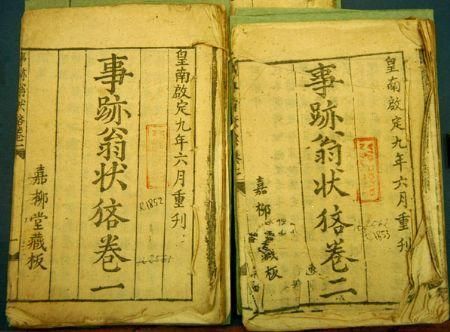 皇南啟定九年六月重刊
事跡翁狀𤞼卷一
R.1852
嘉柳堂藏板
皇南啟定九年六月重刊
事跡翁狀𤞼卷二
1853
嘉柳堂藏板